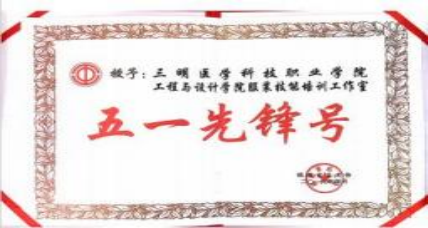 授予：三明医学科技职业学院
工程与设计学院服装技能培训工作室
五一先锋号